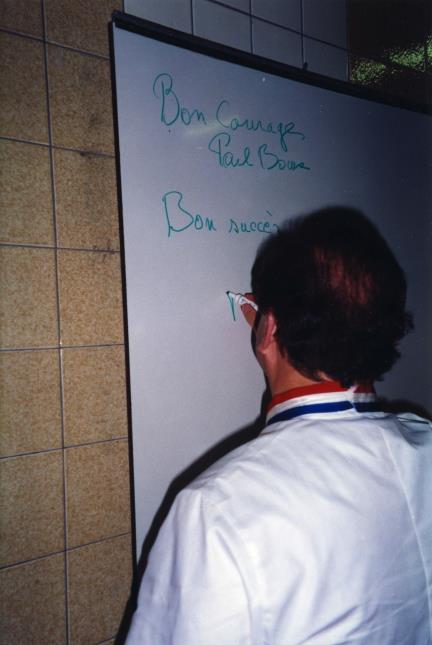 Bon Courage
Paul Bocuse
Bon succès